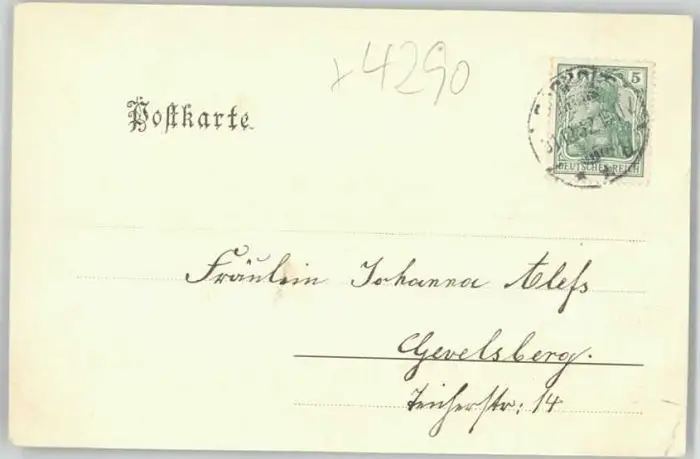 x4290
Postkarte.
5
DEUTSCHES REICH
Fräulein Johanna Alefs
Gevelsberg.
14